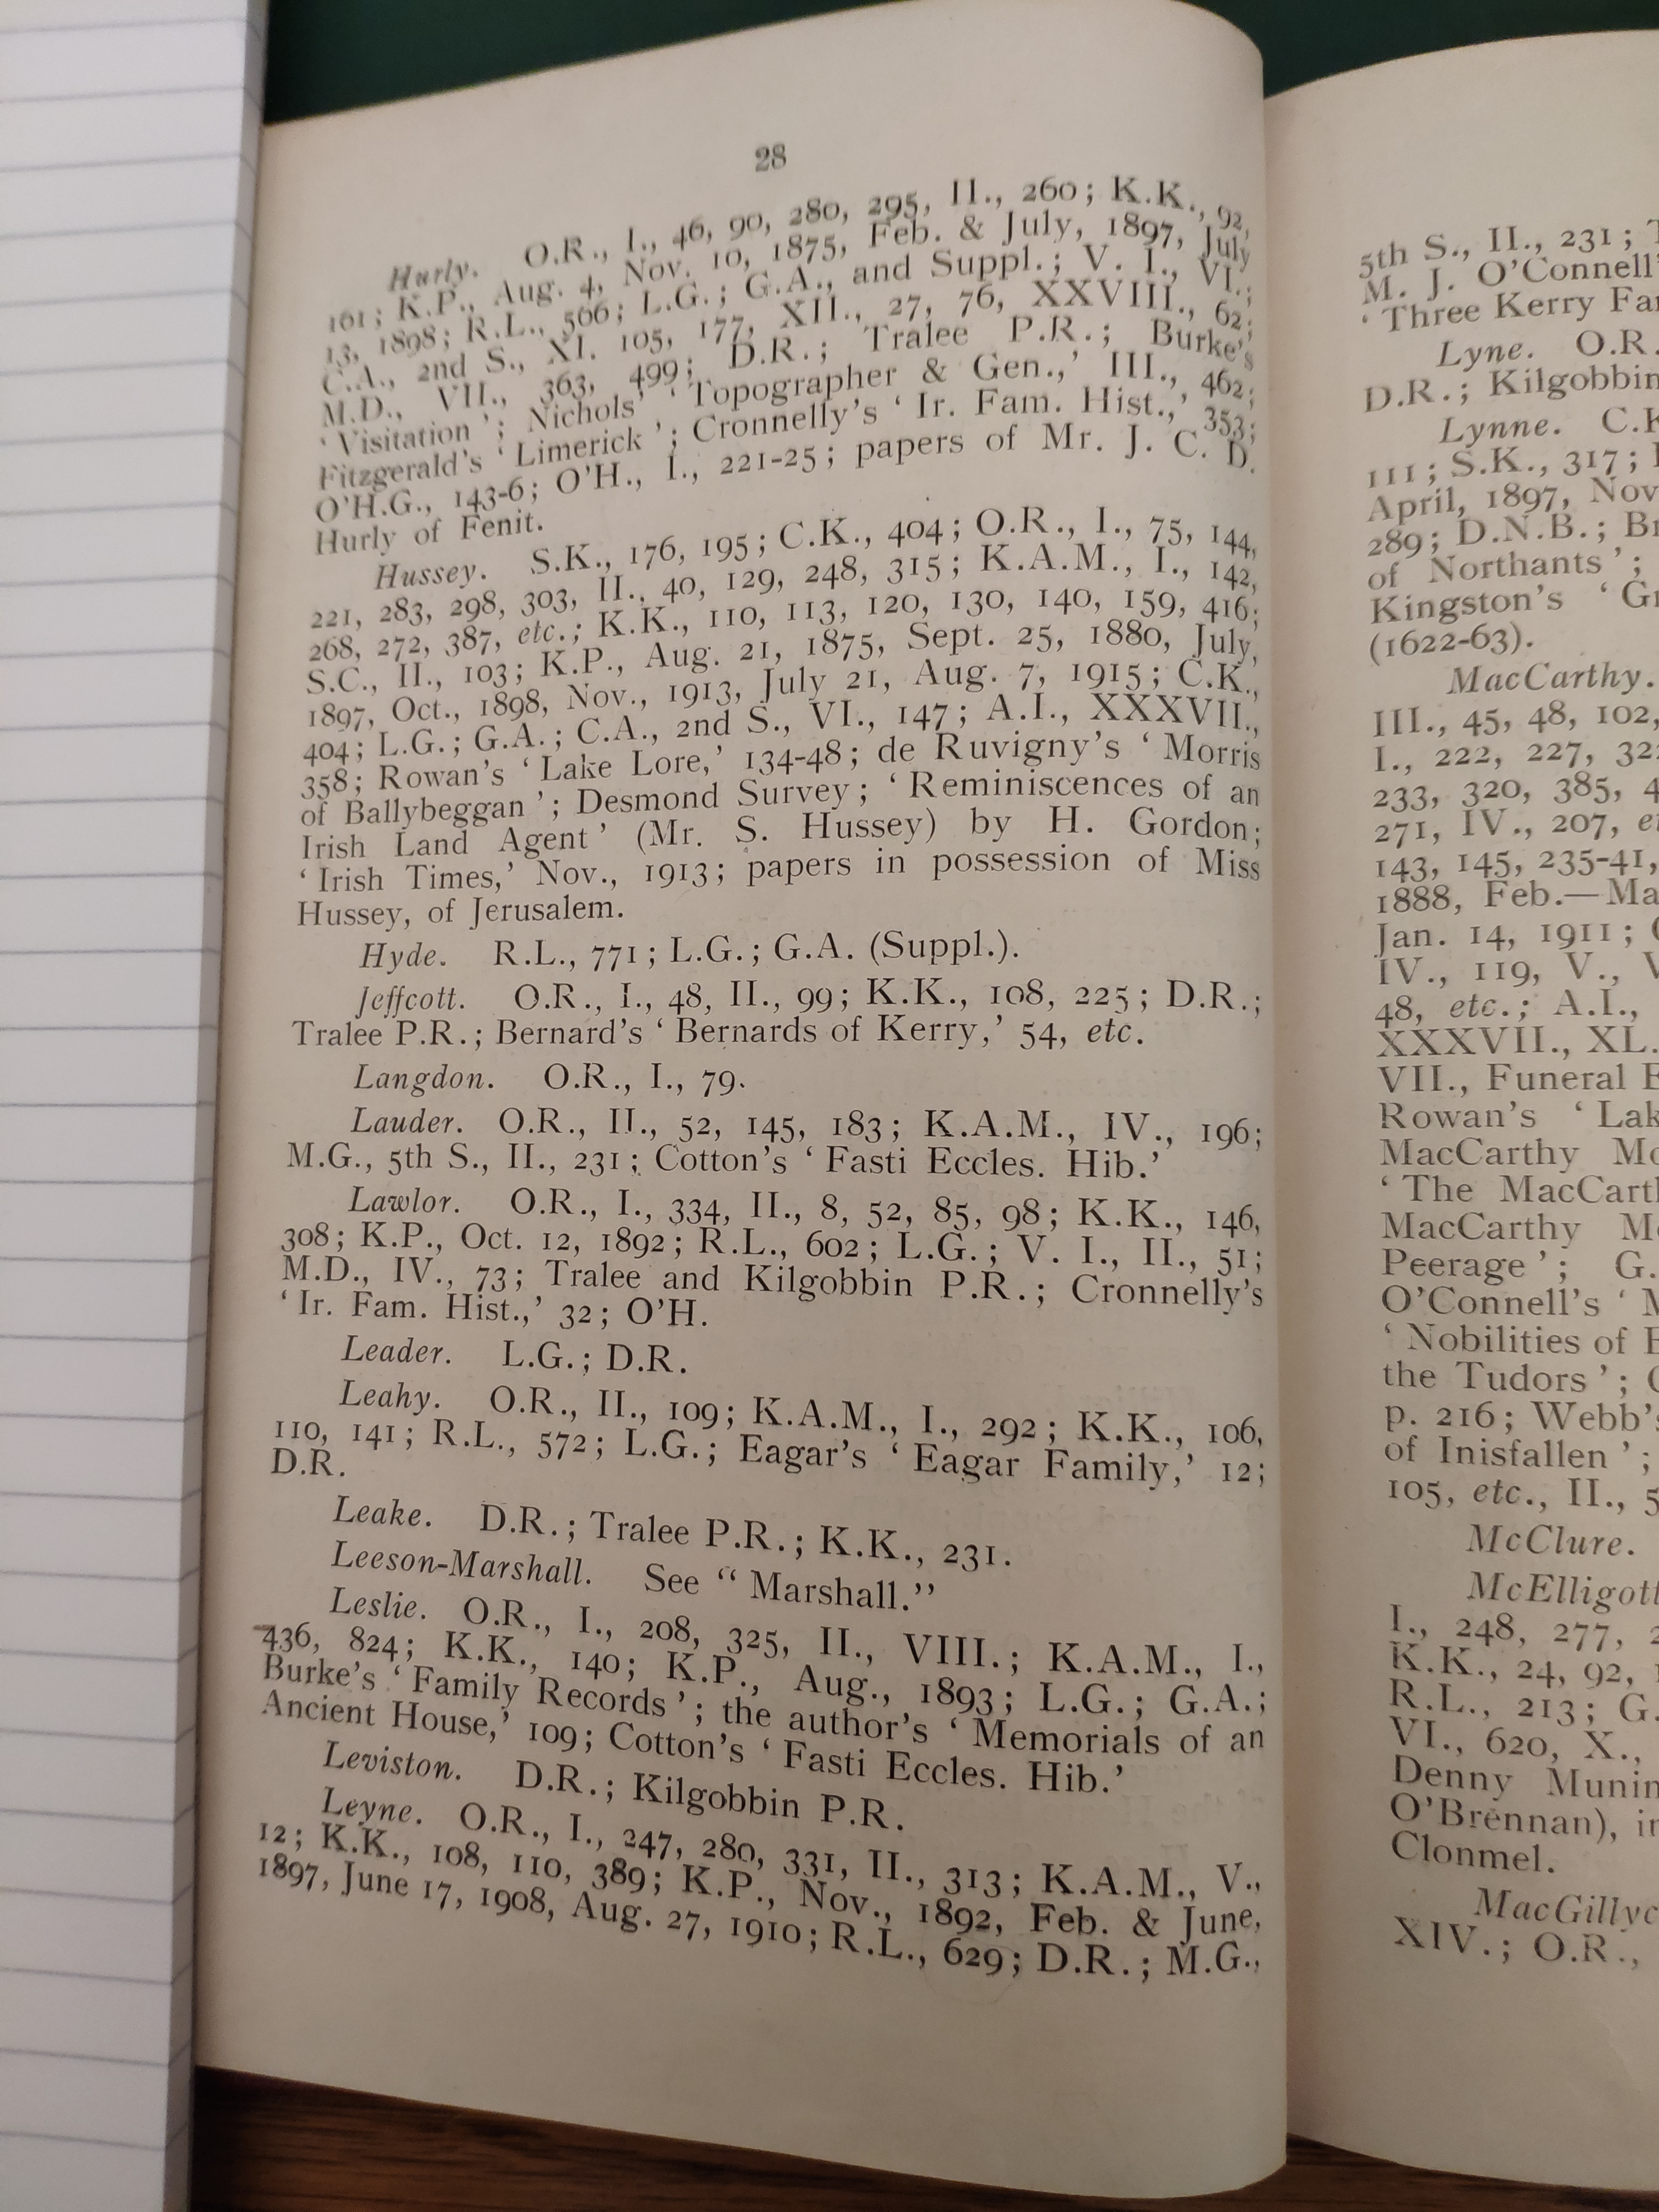 28
Hurly. O.R., I., 46, 90, 280, 295, II., 260; K.K., 92,
161; K.P., Aug. 4, Nov. 10, 1875, Feb. & July, 1897, July
13, 1898; R.L., 566; L.G.; G.A., and Suppl.; V. I., VI.;
C.A., 2nd S., XI. 105, 177, XII., 27, 76, XXVIII., 62;
M.D., VII., 363, 499; D.R.; Tralee P.R.; Burke's
‘Visitation’; Nichols' ‘Topographer & Gen.,’ III., 462;
Fitzgerald's ‘Limerick’; Cronnelly's ‘Ir. Fam. Hist.,’ 353;
O'H.G., 143-6; O'H., I., 221-25; papers of Mr. J. C. D.
Hurly of Fenit.
Hussey. S.K., 176, 195; C.K., 404; O.R., I., 75, 144,
221, 283, 298, 303, II., 40, 129, 248, 315; K.A.M., I., 142,
268, 272, 387, etc.; K.K., 110, 113, 120, 130, 140, 159, 416;
S.C., II., 103; K.P., Aug. 21, 1875, Sept. 25, 1880, July,
1897, Oct., 1898, Nov., 1913, July 21, Aug. 7, 1915; C.K.,
404; L.G.; G.A.; C.A., 2nd S., VI., 147; A.I., XXXVII.,
358; Rowan's ‘Lake Lore,’ 134-48; de Ruvigny's ‘Morris
of Ballybeggan’; Desmond Survey; ‘Reminiscences of an
Irish Land Agent’ (Mr. S. Hussey) by H. Gordon;
‘Irish Times,’ Nov., 1913; papers in possession of Miss
Hussey, of Jerusalem.
Hyde. R.L., 771; L.G.; G.A. (Suppl.).
Jeffcott. O.R., I., 48, II., 99; K.K., 108, 225; D.R.;
Tralee P.R.; Bernard's ‘Bernards of Kerry,’ 54, etc.
Langdon. O.R., I., 79.
Lauder. O.R., II., 52, 145, 183; K.A.M., IV., 196;
M.G., 5th S., II., 231; Cotton's ‘Fasti Eccles. Hib.’
Lawlor. O.R., I., 334, II., 8, 52, 85, 98; K.K., 146,
308; K.P., Oct. 12, 1892; R.L., 602; L.G.; V. I., II., 51;
M.D., IV., 73; Tralee and Kilgobbin P.R.; Cronnelly's
‘Ir. Fam. Hist.,’ 32; O'H.
Leader. L.G.; D.R.
Leahy. O.R., II., 109; K.A.M., I., 292; K.K., 106,
110, 141; R.L., 572; L.G.; Eagar's ‘Eagar Family,’ 12;
D.R.
Leake. D.R.; Tralee P.R.; K.K., 231.
Leeson-Marshall. See “Marshall.”
Leslie. O.R., I., 208, 325, II., VIII.; K.A.M., I.,
436, 824; K.K., 140; K.P., Aug., 1893; L.G.; G.A.;
Burke's ‘Family Records’; the author's ‘Memorials of an
Ancient House,’ 109; Cotton's ‘Fasti Eccles. Hib.’
Leviston. D.R.; Kilgobbin P.R.
Leyne. O.R., I., 247, 280, 331, II., 313; K.A.M., V.,
12; K.K., 108, 110, 389; K.P., Nov., 1892, Feb. & June,
1897, June 17, 1908, Aug. 27, 1910; R.L., 629; D.R.; M.G.,
5th S., II., 231;
M. J. O'Connell'
‘Three Kerry
Lyne. O.R.
D.R.; Kilgobbin
Lynne.
111; S.K., 317;
April, 1897, Nov
289; D.N.B.;
of Northants’;
Kingston's
(1622-63).
MacCarthy.
III., 45, 48, 102,
I., 222, 227,
233, 320, 385,
271, IV., 207,
143, 145, 235-41,
1888, Feb.—
Jan. 14, 1911;
IV., 119, V.,
48, etc.; A.I.,
XXXVII., XL.
VII., Funeral
Rowan's
MacCarthy
‘The
MacCarthy
Peerage’; G.
O'Connell's
‘Nobilities of
the Tudors’;
p. 216; Webb's
of Inisfallen’;
105, etc., II.,
McClure.
McElligott
I., 248, 277,
K.K., 24, 92,
R.L., 213; G.
VI., 620, X.,
Denny
O'Brennan),
Clonmel.
MacGillyc
XIV.; O.R.,